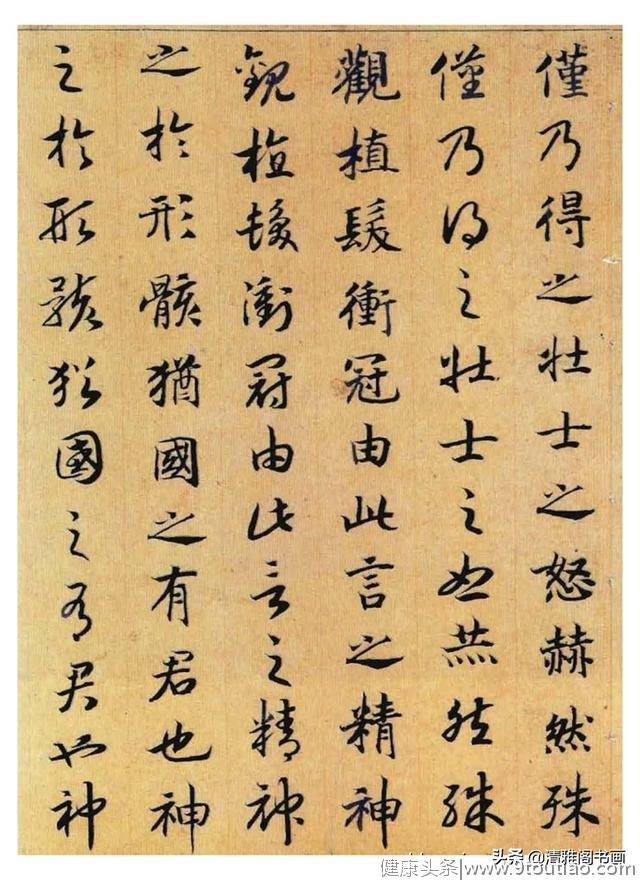 僅乃得之壮士之怒赫然殊
僅乃得之壮士之怒赫然殊
觀植髮衝冠由此言之精神
觀植髮衝冠由此言之精神
之於形骸猶國之有君也神
之於形骸猶國之有君也神
头条 @清雅阁书画
健康头条|www.9toutiao.com